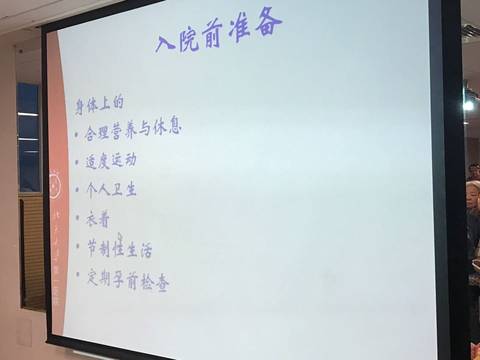 入院前准备
身体上的
• 合理营养与休息
• 适度运动
• 个人卫生
• 衣着
• 节制性生活
• 定期孕前检查